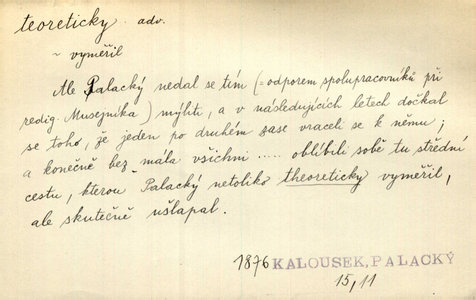 teoreticky . adv.
~ vyměřil
Ale Palacký nedal se tím (= odporem spolupracovníků při
redig. Musejníka) mýliti, a v následujících letech dočkal
se toho, že jeden po druhém zase vraceli se k němu;
a konečně bez mála všichni ..... oblíbili sobě tu střední
cestu, kterou Palacký netoliko theoreticky vyměřil,
ale skutečně ušlapal.
1876 KALOUSEK, PALACKÝ
15, 11